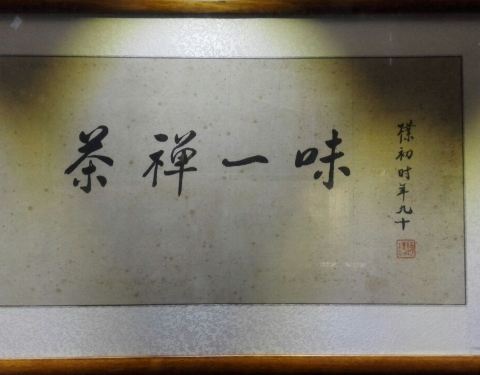 茶禅一味
樸初时年九十